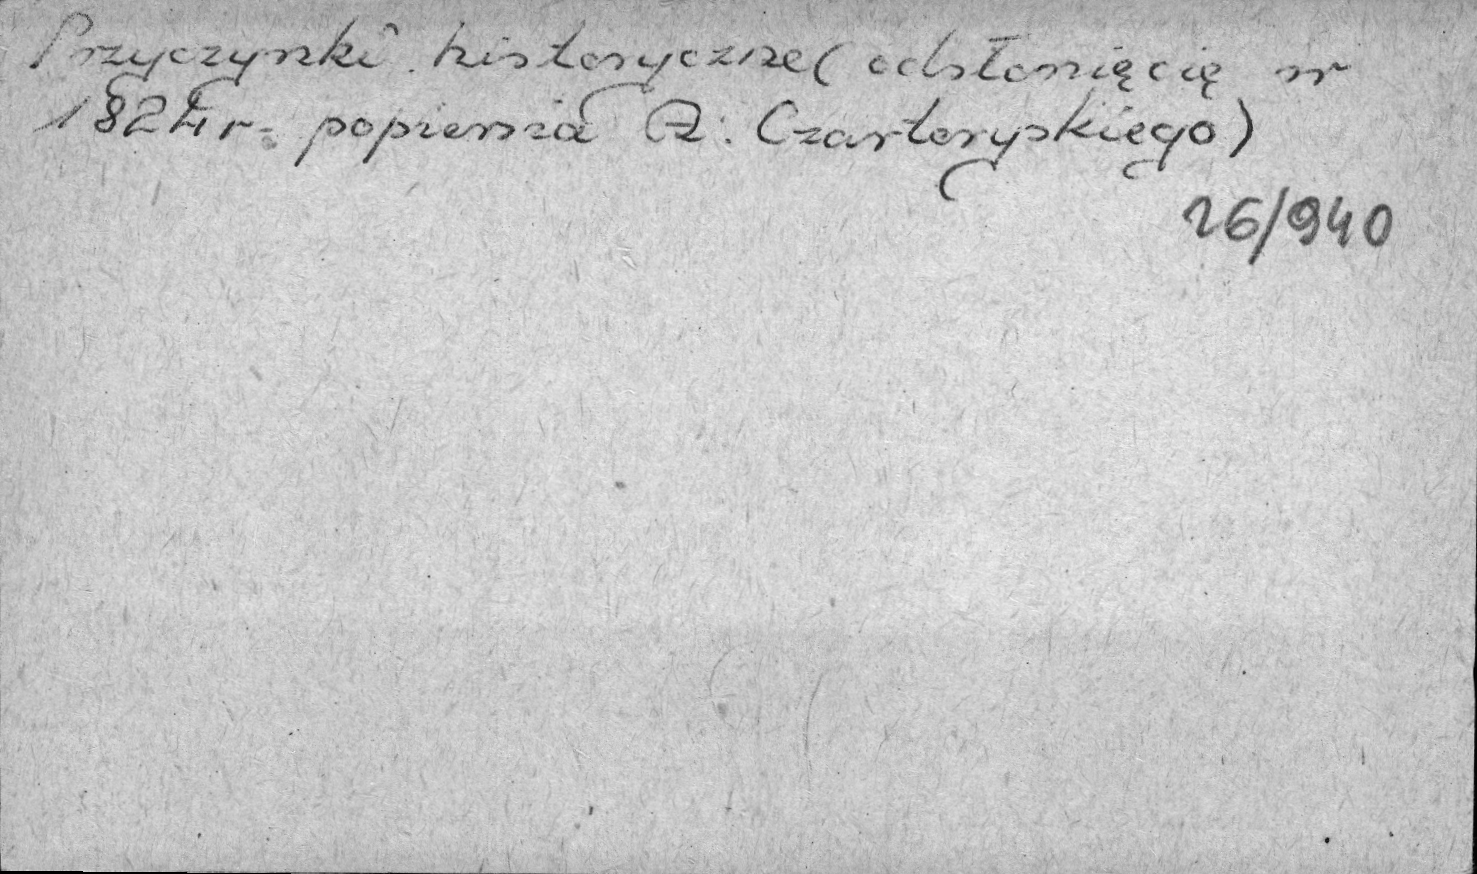 Przyczynki historyczne (odsłonięcię w
1824 r. popiersia A. Czartoryskiego)
26/940